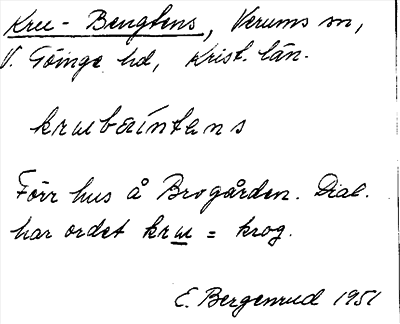 Kru-Bengtens, Verums sn,
V. Göinge hd, Krist. län.
krɯbæíntans
Förr hus å Brogården. Dial.
har ordet krɯ = krog.
E. Bergenrud 1951